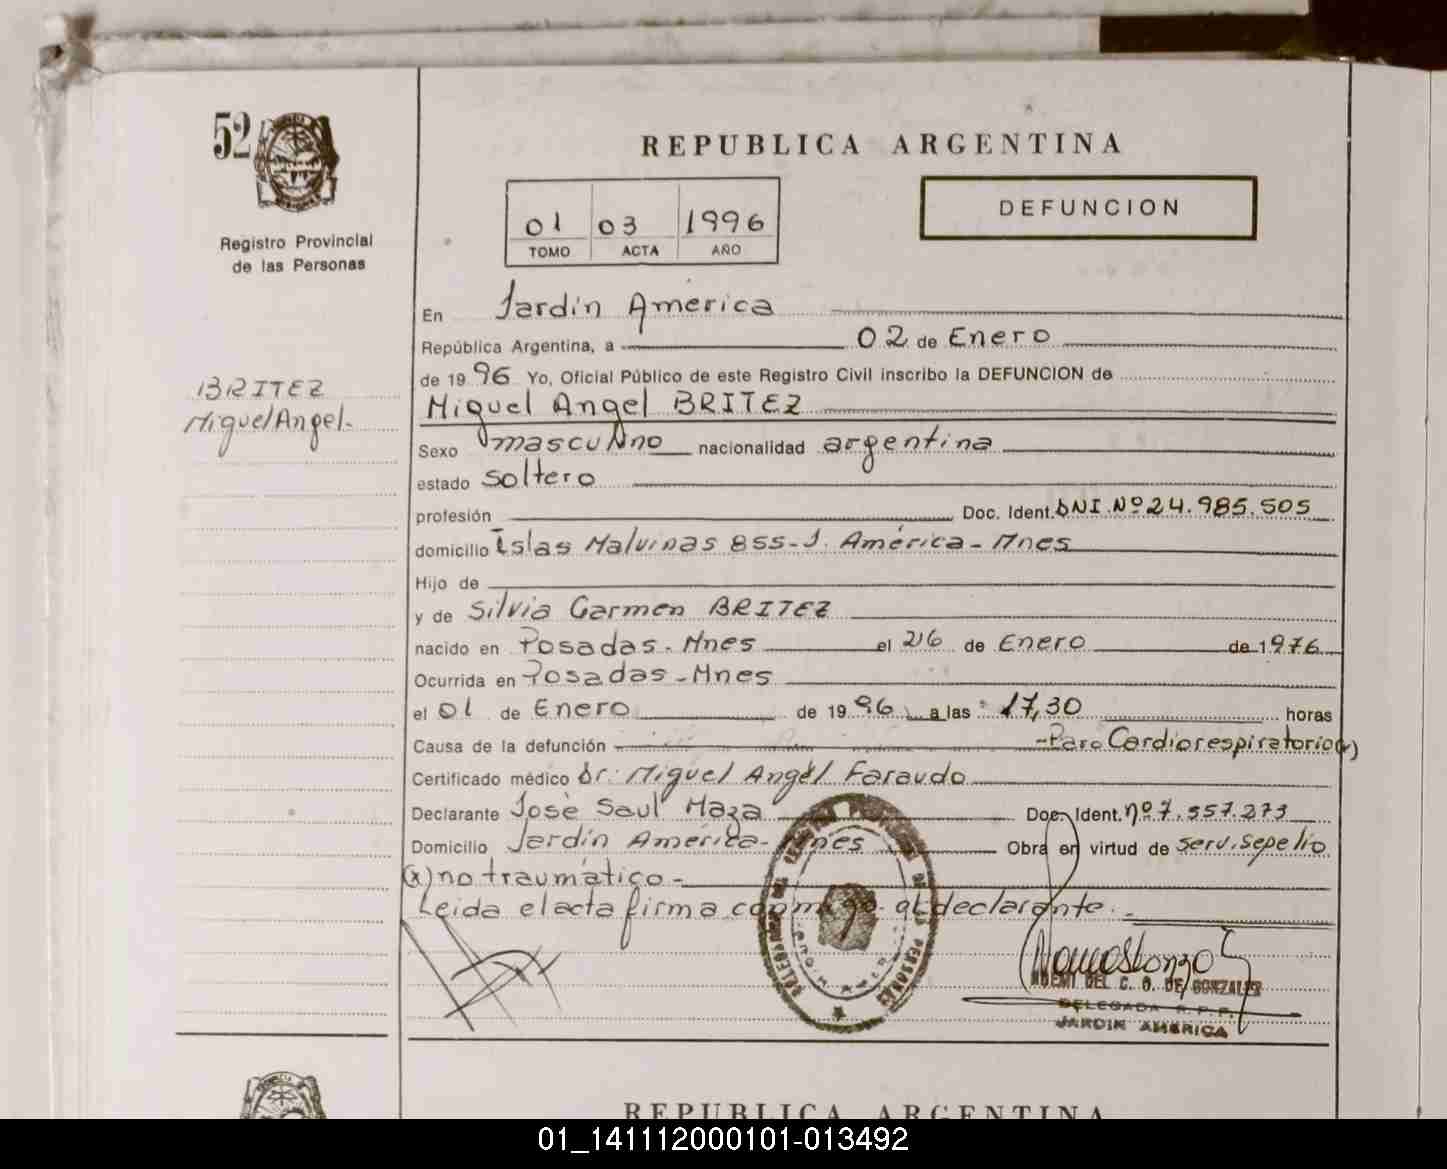 52
Registro Provincial
de las Personas
BRITEZ
Miguel Angel-
REPUBLICA ARGENTINA
DEFUNCION
01 03 1996
TOMO ACTA AÑO
En Jardín América
República Argentina, a 02 de Enero
de 1996 Yo, Oficial Público de este Registro Civil inscribo la DEFUNCION de
Miguel Angel BRITEZ
Sexo masculino nacionalidad argentina
estado soltero
profesión Doc. Ident. DNI.Nº24.985.505
domicilio Islas Malvinas 855-J. América-Mnes
Hijo de
y de Silvia Carmen BRITEZ
nacido en Posadas-Mnes el 26 de Enero de 1976
Ocurrida en Posadas-Mnes
el 01 de Enero de 1996 a las 17,30 horas
Causa de la defunción -Paro Cardiorespiratorio(x)
Certificado médico Dr. Miguel Angel Faraudo
Declarante José Saul Maza Doc. Ident. nº7.557.273
Domicilio Jardín América-Mnes Obra en virtud de Serv. Sepelio
(x) no traumático-
Leida el acta firma conmigo el declarante.-
NOEMI DEL C. O. DE GONZALEZ
DELEGADA R.P.P.
JARDIN AMERICA
REPUBLICA ARGENTINA
01_141112000101-013492